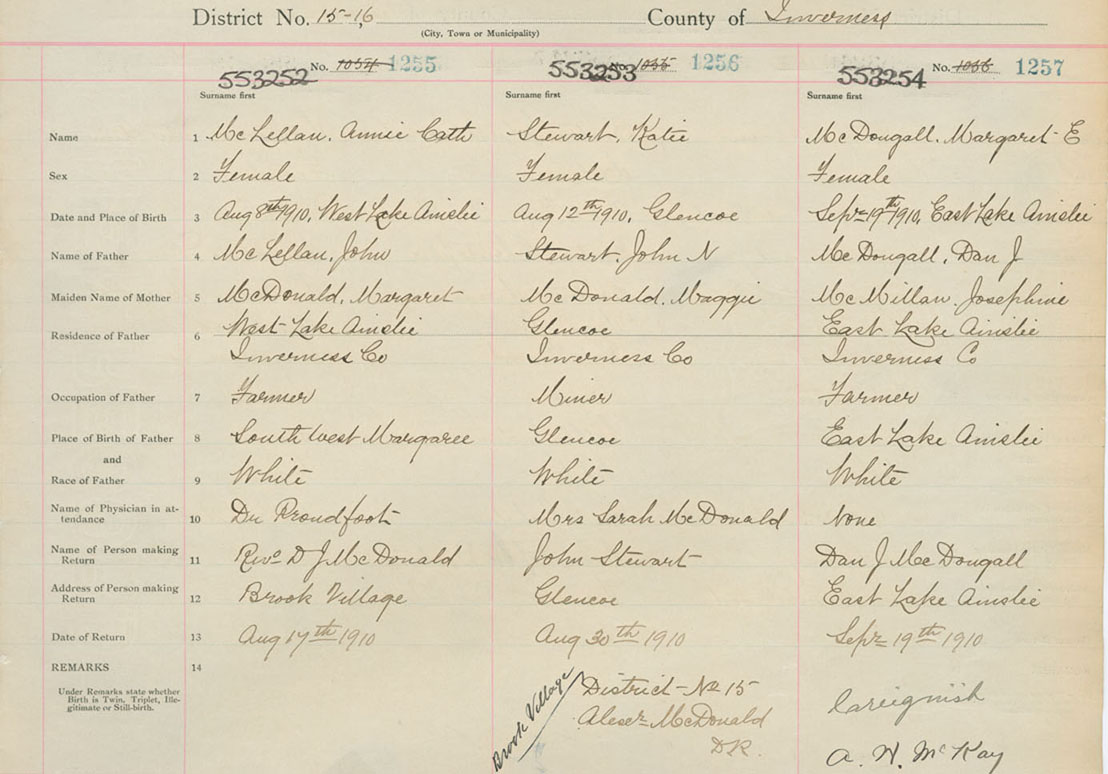 District No. 15-16 County of Inverness
(City, Town or Municipality)
553252 No. 1054 1255 553253 No. 1055 1256 553254 No. 1056 1257
Surname first Surname first Surname first
Name 1 McLellan, Annie Cath Stewart, Katie McDougall, Margaret E
Sex 2 Female Female Female
Date and Place of Birth 3 Aug 8th 1910, West Lake Ainslie Aug 12th 1910, Glencoe Sept 19th 1910, East Lake Ainslie
Name of Father 4 McLellan, John Stewart, John N McDougall, Dan J
Maiden Name of Mother 5 McDonald, Margaret McDonald, Maggie McMillan, Josephine
Residence of Father 6 West Lake Ainslie Glencoe East Lake Ainslie
Inverness Co Inverness Co Inverness Co
Occupation of Father 7 Farmer Miner Farmer
Place of Birth of Father 8 South West Margaree Glencoe East Lake Ainslie
and
Race of Father 9 White White White
Name of Physician in at-
tendance 10 Dr Proudfoot Mrs Sarah McDonald None
Name of Person making
Return 11 Revd D J McDonald John Stewart Dan J McDougall
Address of Person making
Return 12 Brook Village Glencoe East Lake Ainslie
Date of Return 13 Aug 17th 1910 Aug 30th 1910 Sept 19th 1910
REMARKS 14
Under Remarks state whether
Birth is Twin, Triplet, Ille-
gitimate or Still-birth.
Brook Village
District No 15
Alexr McDonald
D.R.
Careignish
A. W. McKay